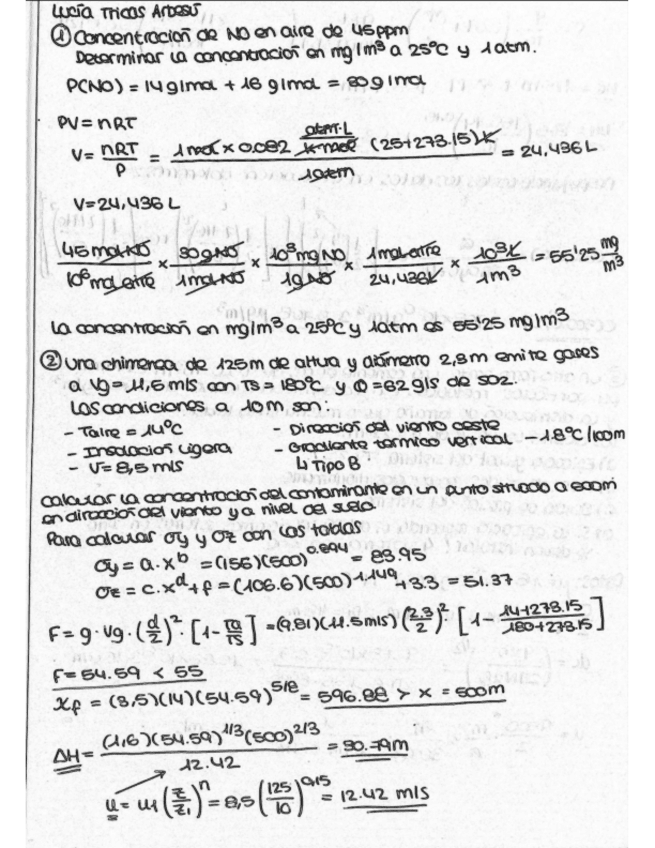 Lucía Tricas Ardesi
① Concentración de NO en aire de 45 ppm
Determinar la concentración en mg/m³ a 25°C y 1 atm.
P(NO) = 14 g/mol + 16 g/mol = 30 g/mol
PV = nRT
V = nRT/P = 1 mol × 0.082 atm·L/K·mol (25+273.15) K / 1 atm = 24,436 L
V = 24,436 L
45 mol NO/10⁶ mol aire × 30 g NO/1 mol NO × 10³ mg NO/1 g NO × 1 mol aire/24,436 L × 10³ L/1 m³ = 55'25 mg/m³
La concentración en mg/m³ a 25°C y 1 atm es 55'25 mg/m³
② Una chimenea de 125m de altura y diámetro 2,3m emite gases
a Vg = 11,5 m/s con Ts = 180°C. y Q = 62 g/s de SO2.
Las condiciones a 10m son:
- Taire = 14°C - Dirección del viento oeste
- Insolación ligera - Gradiente térmico vertical -1.8°C/100m
- V = 8,5 m/s ↳ Tipo B
Calcular la concentración del contaminante en un punto situado a 500m
en dirección del viento y a nivel del suelo.
Para calcular σy y σz con las tablas
σy = a·x^b = (156)(500)^0.894 = 83.95
σz = c·x^d + f = (106.6)(500)^1.149 + 3.3 = 51.37
F = g·Vg·(d/2)²·[1 - Ta/Ts] = (9.81)(11.5 m/s)(2.3/2)²·[1 - 14+273.15/180+273.15]
F = 54.59 < 55
Xf = (3,5)(14)(54.59)^5/8 = 596.88 > x = 500m
ΔH = (1,6)(54.59)^1/3(500)^2/3 / 12.42 = 30.79m
u = u₁(z/z₁)^n = 8,5(125/10)^0,15 = 12.42 m/s